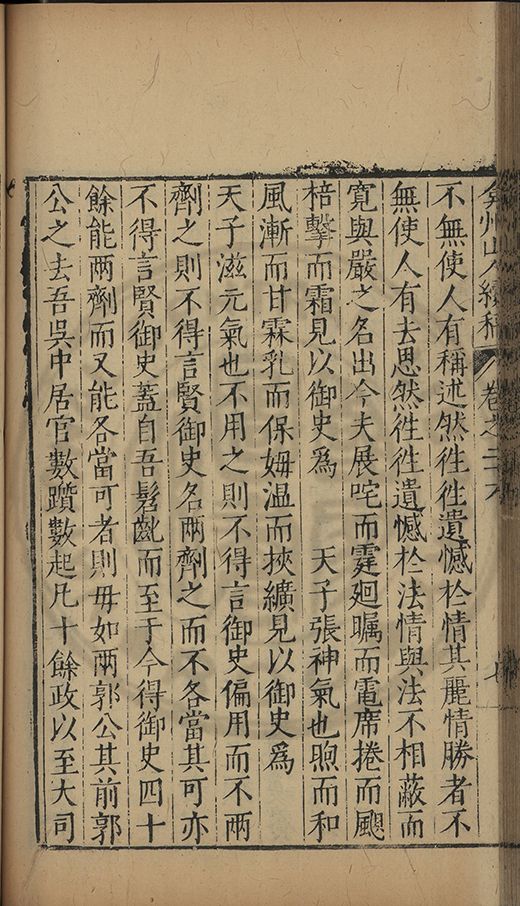 弇州山人續稿 卷之二十八 七
不無使人有稱述然徃徃遺憾於情其麗情勝者不
無使人有去思然徃徃遺憾於法情與法不相蔽而
寛與嚴之名出今夫展咤而霆廻矚而電席捲而颶
棓擊而霜見以御史爲 天子張神氣也煦而和
風漸而甘霖乳而保姆温而挾纊見以御史爲
天子滋元氣也不用之則不得言御史偏用而不兩
劑之則不得言賢御史名兩劑之而不各當其可亦
不得言賢御史蓋自吾髫齔而至于今得御史四十
餘能兩劑而又能各當可者則毋如兩郭公其前郭
公之去吾吳中居官數躓數起凡十餘政以至大司